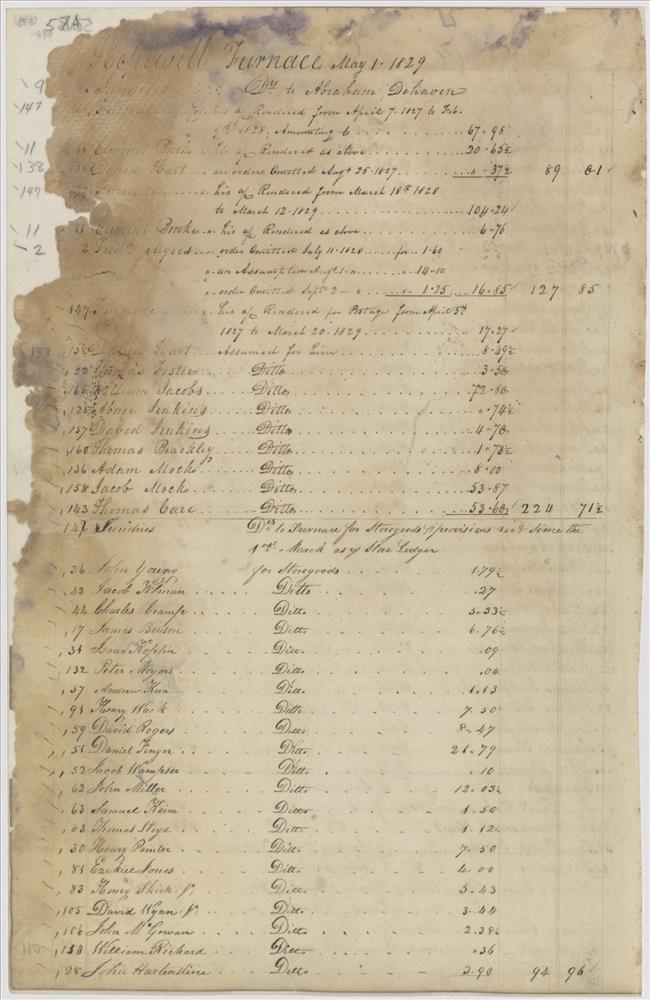 57A
Hopewell Furnace May 1. 1829
9 Drs to Abraham Dehaven
147 for his a/c Rendered from April 7. 1827 to Feb.
1828. Amounting to 67.98
11 Clement Brooke " his a/c Rendered as above 20.65½
138 David Hart " an orders Omitted Augt 25. 1827 " 37½ 89 01
147 Furnace " his a/c Rendered from March 18th 1828
to March 12. 1829 104.24
11 Clement Brooke " his a/c Rendered as above 6.76
2 Myers " order Omitted July 11. 1828 for 1.60
" an Assumption Augt 1 " " 14.00
" order Omitted Septr 2 " " 1.25 16.85 127 85
147 Furnace " his a/c Rendered for Postage from April 5th
1827 to March 20. 1829 17.27
138 138 David Hart Assumed for him 8.49½
22 Thomas Foster Ditto 3.50
166 William Jacobs Ditto 72.80
125 Abner Jenkins Ditto .74½
157 David Jenkins Ditto 4.70
160 Thomas Beachley Ditto 1.73½
136 Adam Mock Ditto 8.00
158 Jacob Mock Ditto 53.87
143 Thomas Care Ditto 53.60 224 71½
147 Sundries Drs to Furnace for Storegoods & provisions recd since the
1st March as pr Store Ledger
36 John Young for Storegoods 1.79½
42 Jacob Ditto .27
44 Charles Crampe Ditto 5.33½
17 James Benson Ditto 6.76½
34 Isaac Koplin Ditto .09
132 Peter Moyers Ditto .04
57 Andrew Ditto 1.13
91 Henry Wack Ditto 7.50
59 David Rogers Ditto 8.47
51 Daniel Finger Ditto 21.79
52 Jacob Wampser Ditto .10
62 John Miller Ditto 12.03½
63 Samuel Keim Ditto 1.50
03 Thomas Lloyd Ditto 1.12
30 Henry Painter Ditto 7.50
81 Ezekiel Jones Ditto 4.00
83 Henry Shick Jr Ditto 5.43
105 David Wynn Jr Ditto 3.44
106 John McGowan Ditto 2.38½
150 William Richard Ditto .36
28 John Harlenstine Ditto 3.90 94 96